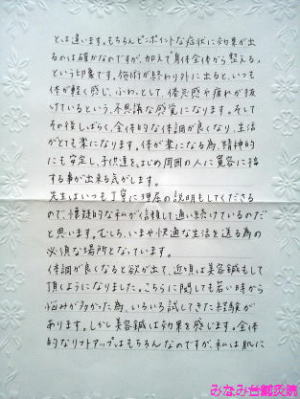 とは違います。もちろんピンポイントな症状に効果が出
るのは確かなのですが、加えて身体全体から整える、
という印象です。施術が終わり外に出ると、いつも
体が軽く感じ、ふわっとして、倦怠感や疲れが抜
けているという、不思議な感覚になります。そして
その後しばらく、全体的な体調が良くなり、生活
がとても楽になります。体が楽になる為、精神的
にも安定し、子供達をはじめ周囲の人に寛容に接
する事が出来る気がします。
先生はいつも丁寧に理屈の説明もしてくださる
ので、懐疑的な私が信頼して通い続けているのだ
と思います。むしろ、いまや快適な生活を送る為の
必須な場所となっています。
体調が良くなると欲が出て、近頃は美容鍼もして
頂くようになりました。こちらに関しても若い時から
悩みが多かった為、いろいろ試してきた経験が
あります。しかし美容鍼は効果を感じます。全体
的なリフトアップはもちろんなのですが、私は肌に
みなみ台鍼灸院